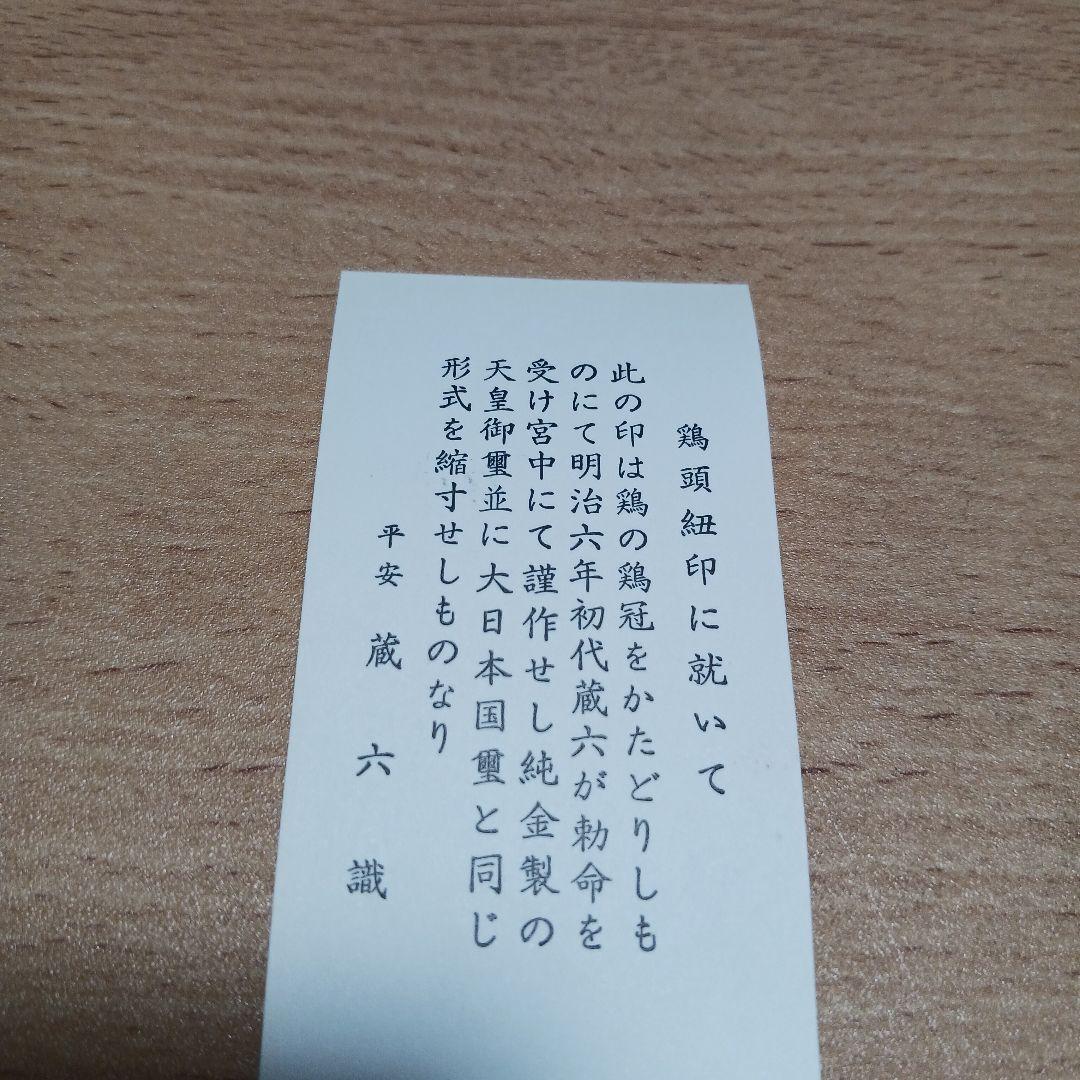 鶏頭紐印に就いて
此の印は鶏の鶏冠をかたどりしも
のにて明治六年初代蔵六が勅命を
受け宮中にて謹作せし純金製の
天皇御璽並に大日本国璽と同じ
形式を縮寸せしものなり
平安 蔵六識